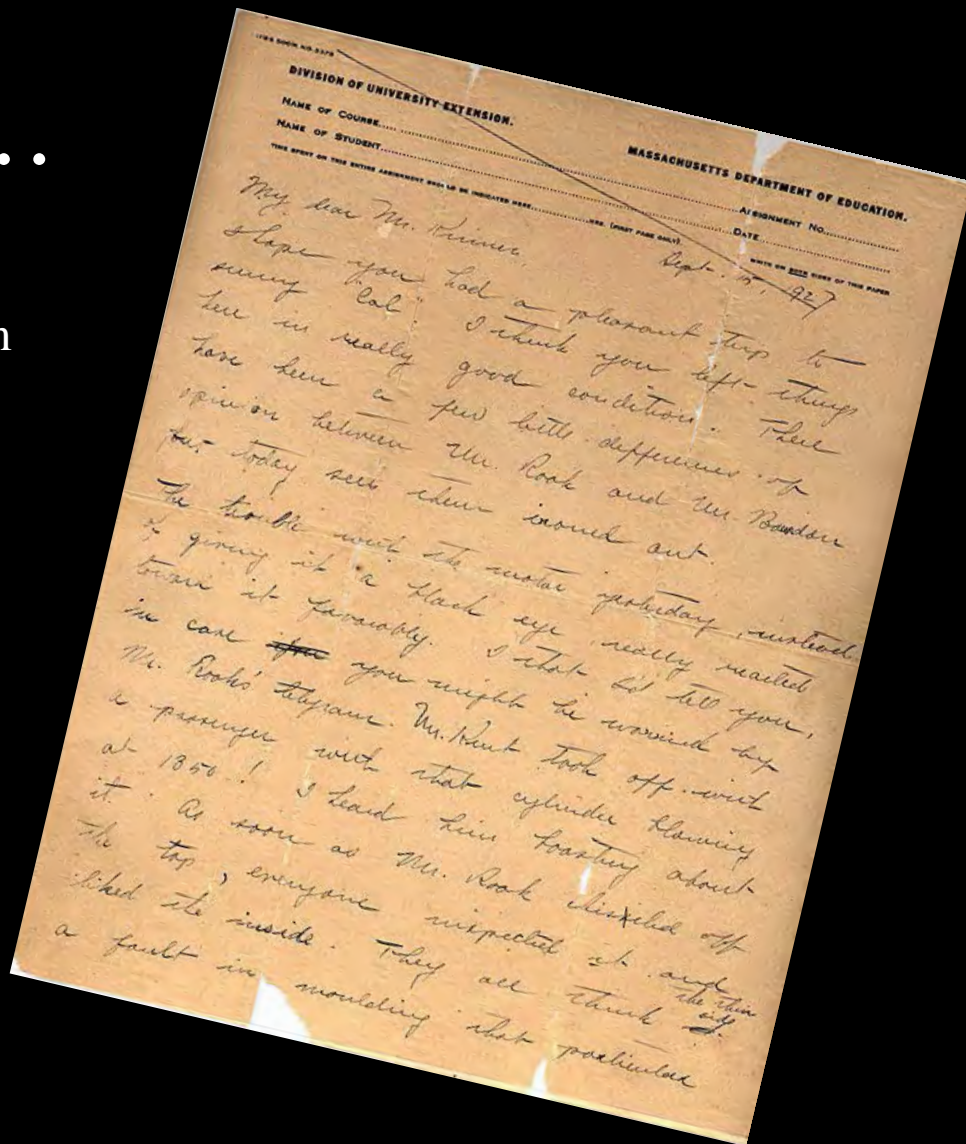 ..
n
DIVISION OF UNIVERSITY EXTENSION.
MASSACHUSETTS DEPARTMENT OF EDUCATION.
NAME OF COURSE
ASSIGNMENT No.
NAME OF STUDENT
DATE
TIME SPENT ON THIS ENTIRE ASSIGNMENT SHOULD BE INDICATED HERE HRS. (FIRST PAGE ONLY).
WRITE ON BOTH SIDES OF THIS PAPER
Sept. 15, 1927
My dear Mr. Kinner.
I hope you had a pleasant trip to
sunny "Cal" I think you left things
here in really good condition. There
have been a few little differences of
opinion between Mr. Rook and Mr.
but today sees them ironed out.
The trouble with the motor yesterday, instead
of giving it a black eye, really reacted
toward it favorably. I that I'd tell you,
in case you might be worried by
Mr. Rook's telegram. Mr. took off with
a passenger with that cylinder blowing
at 1350! I heard him boasting about
it. As soon as Mr. Rook off
the top, everyone inspected it and
liked the inside. They all think the thin side
a fault in moulding that particular